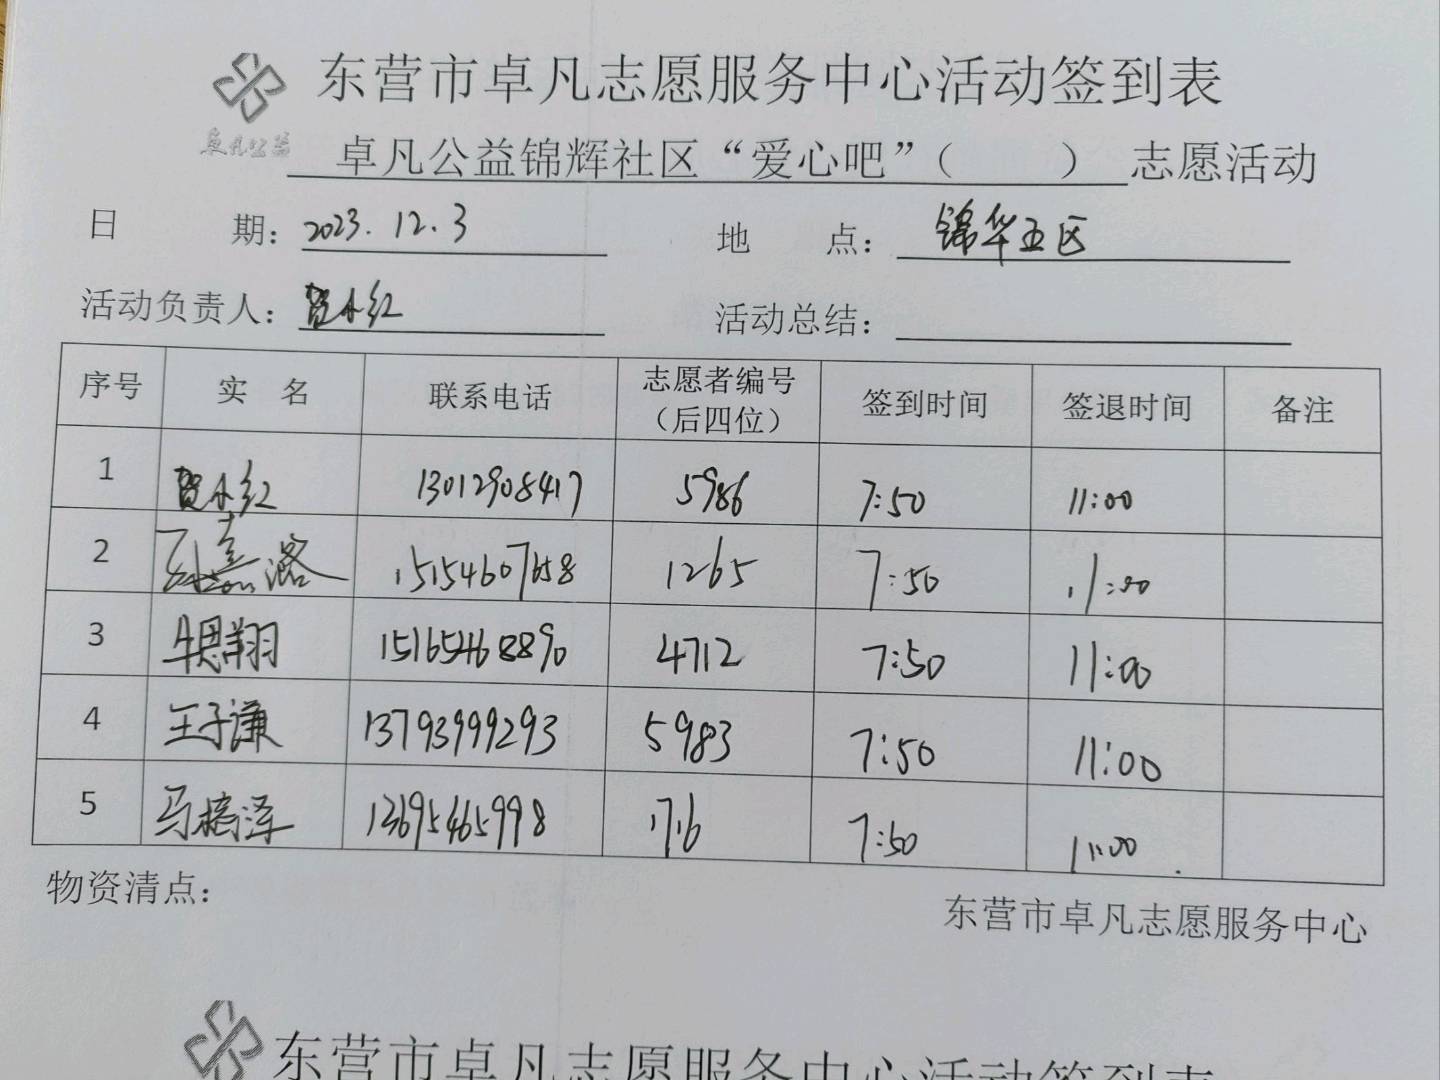 东营市卓凡志愿服务中心活动签到表
卓凡公益
卓凡公益锦辉社区“爱心吧”（ ）志愿活动
日 期：2023.12.3 地 点：锦华五区
活动负责人：贺小红 活动总结：
序号 实 名 联系电话 志愿者编号（后四位） 签到时间 签退时间 备注
1 贺小红 13012908417 5986 7:50 11:00
2 15154607658 1265 7:50 11:00
3 牛思翔 15165468890 4712 7:50 11:00
4 王子谦 13793999293 5983 7:50 11:00
5 马梓泽 13695465998 1716 7:50 11:00
物资清点：
东营市卓凡志愿服务中心
东营市卓凡志愿服务中心活动签到表